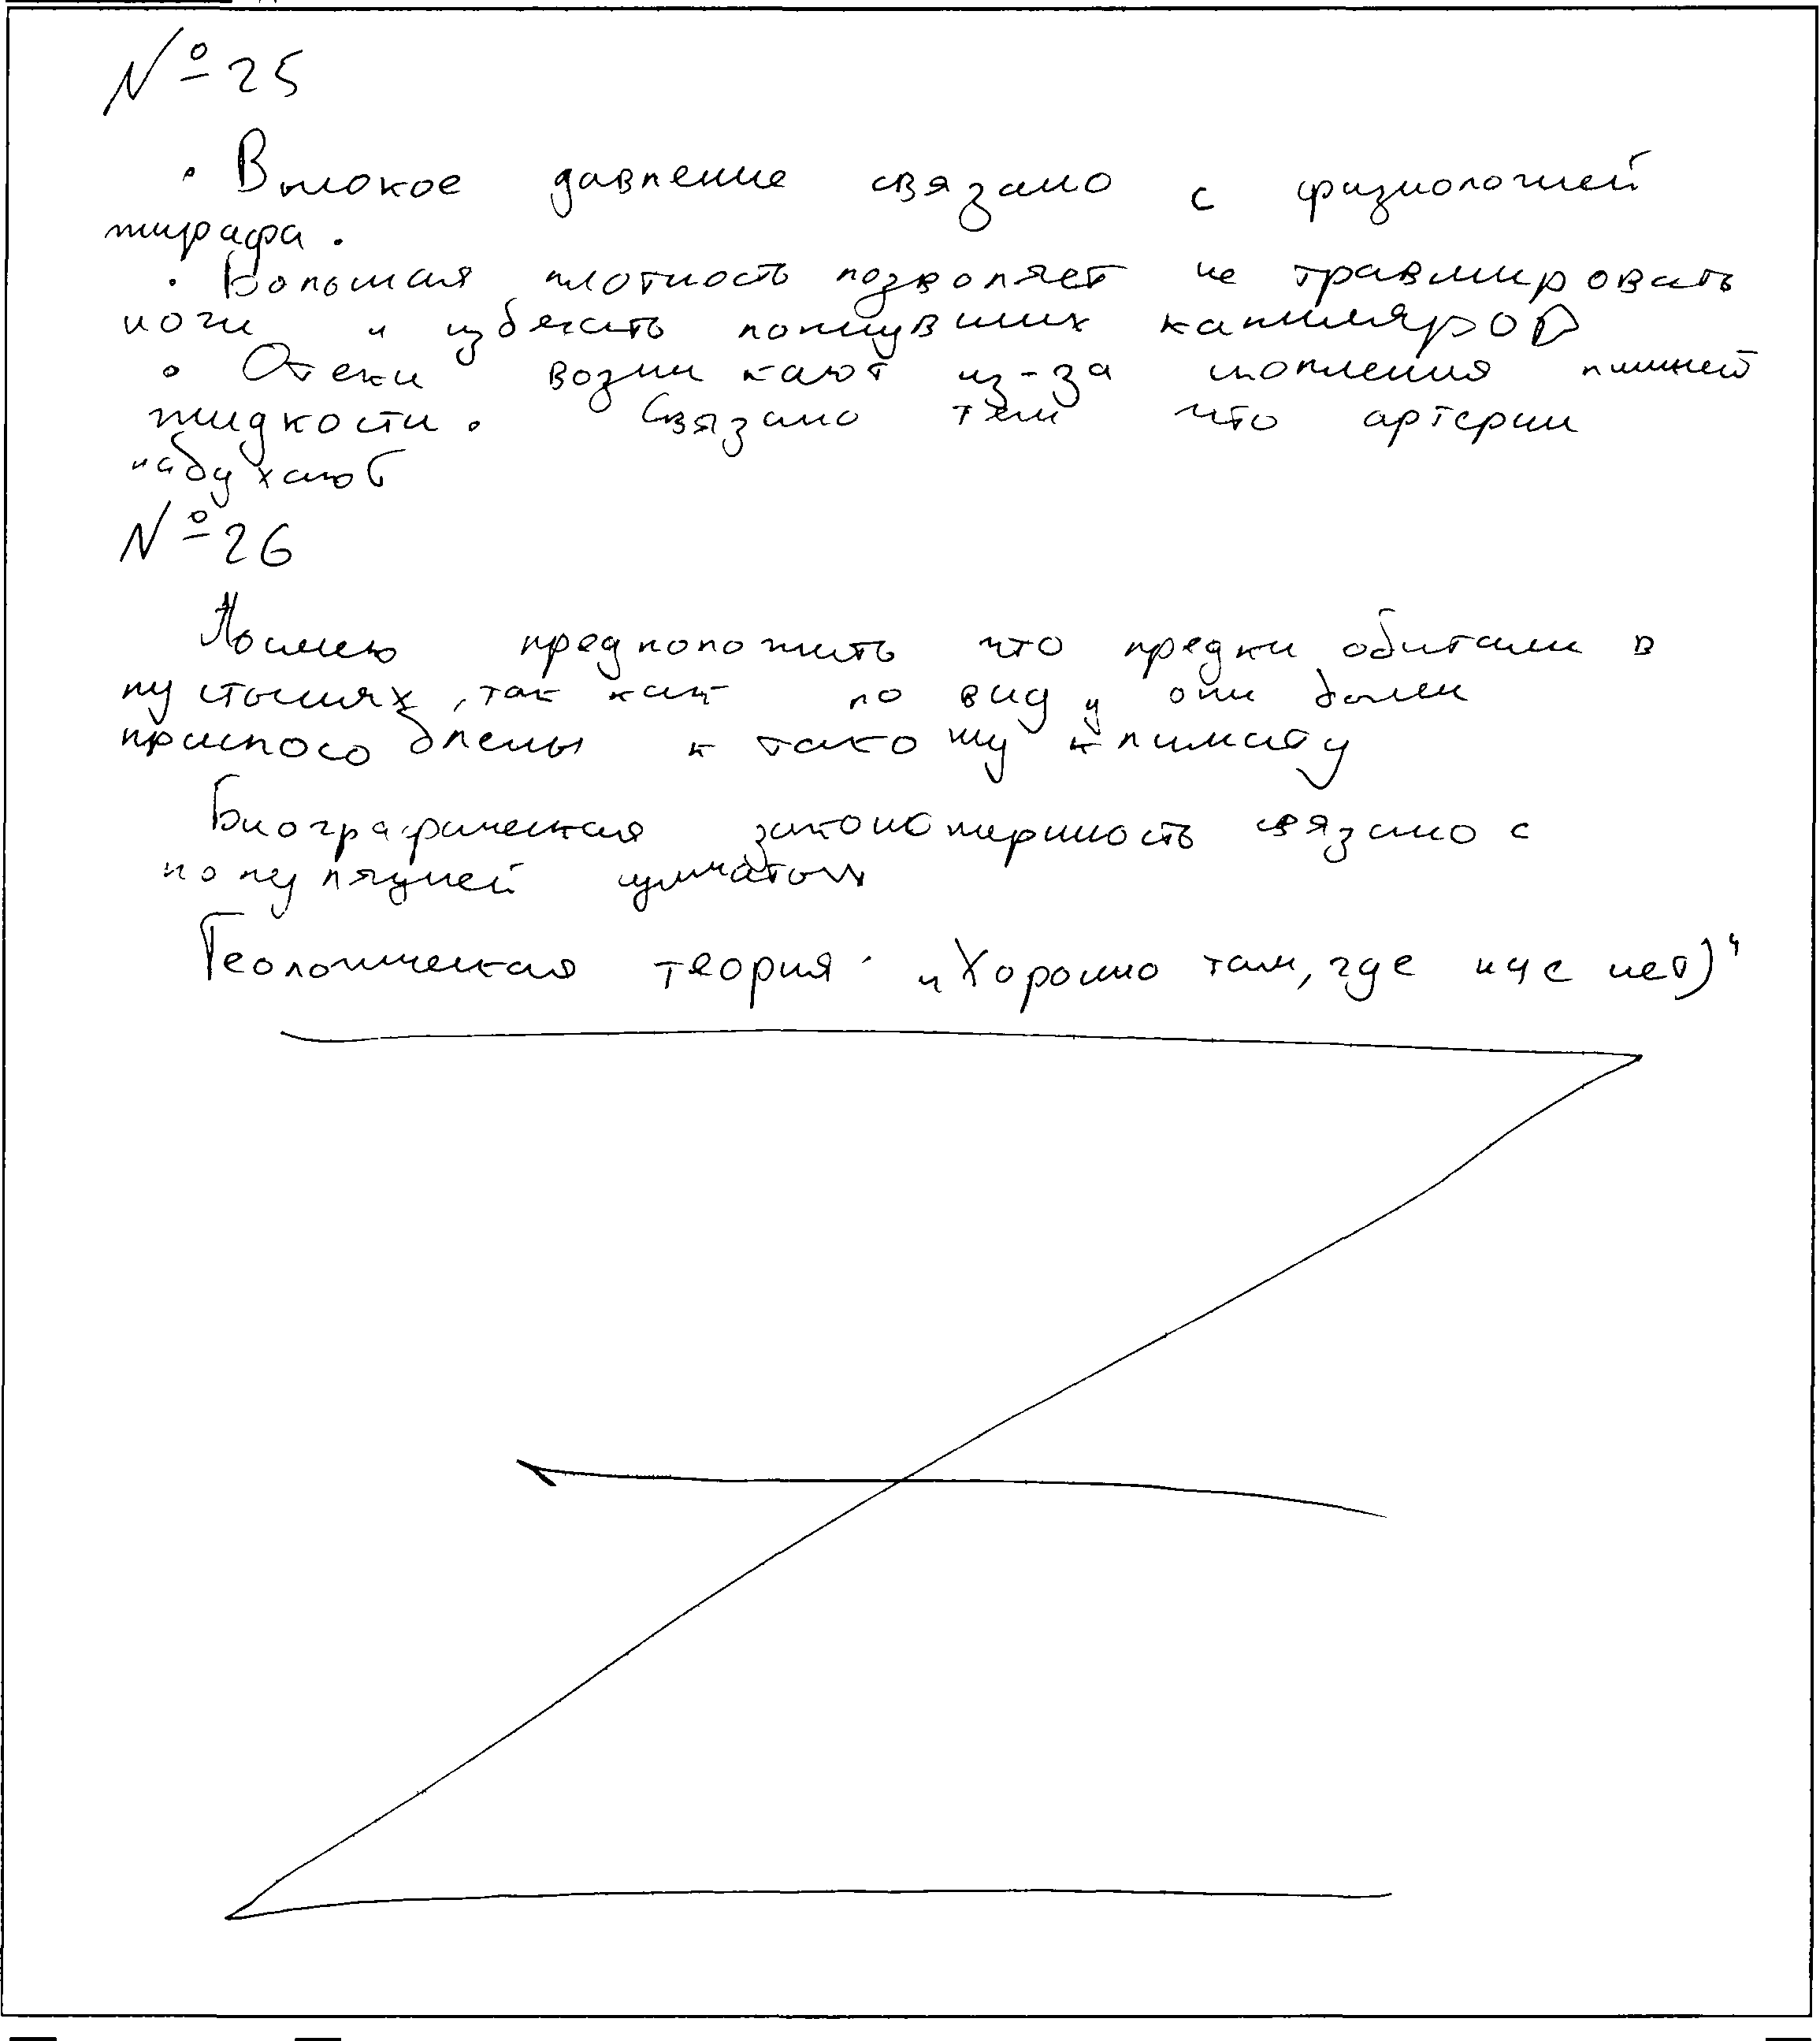 № 25
• Высокое давление связано с физиологией
жирафа.
• Большая плотность позволяет не травмировать
ноги и избежать лопнувших капиляров
• Отеки возникают из-за скопления лишней
жидкости. Связано тем что артерии
набухают
№ 26
предположить что предки обитали в
пустынях, так как по виду они были
приспособлены к такому климату
Биографическая закономерность связано с
популяцией
Геологическая теория: „Хорошо там, где нас нет)“